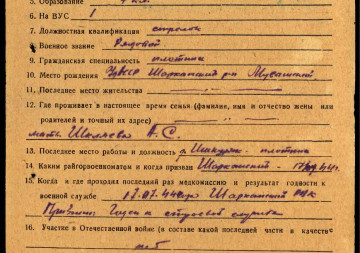 5. Образование 4 кл.
6. На ВУС 1
7. Должностная квалификация стрелок
8. Военное звание Рядовой
9. Гражданская специальность плотник
10. Место рождения УАССР Шарканский р-н
11. Последнее место жительства — „ — „ —
12. Где проживает в настоящее время семья (фамилия, имя и отчество жены или
родителей и точный их адрес) — „ — „ —
мать А. С.
13. Последнее место работы и должность плотник
14. Каким райгорвоенкоматом и когда призван Шарканский
15. Когда и где проходил последний раз медкомиссию и результат годности к
военной службе 17.07.44 Шарканский РВК
Годен к строевой службе
16. Участие в Отечественной войне (в составе какой последней части и качестве
нет